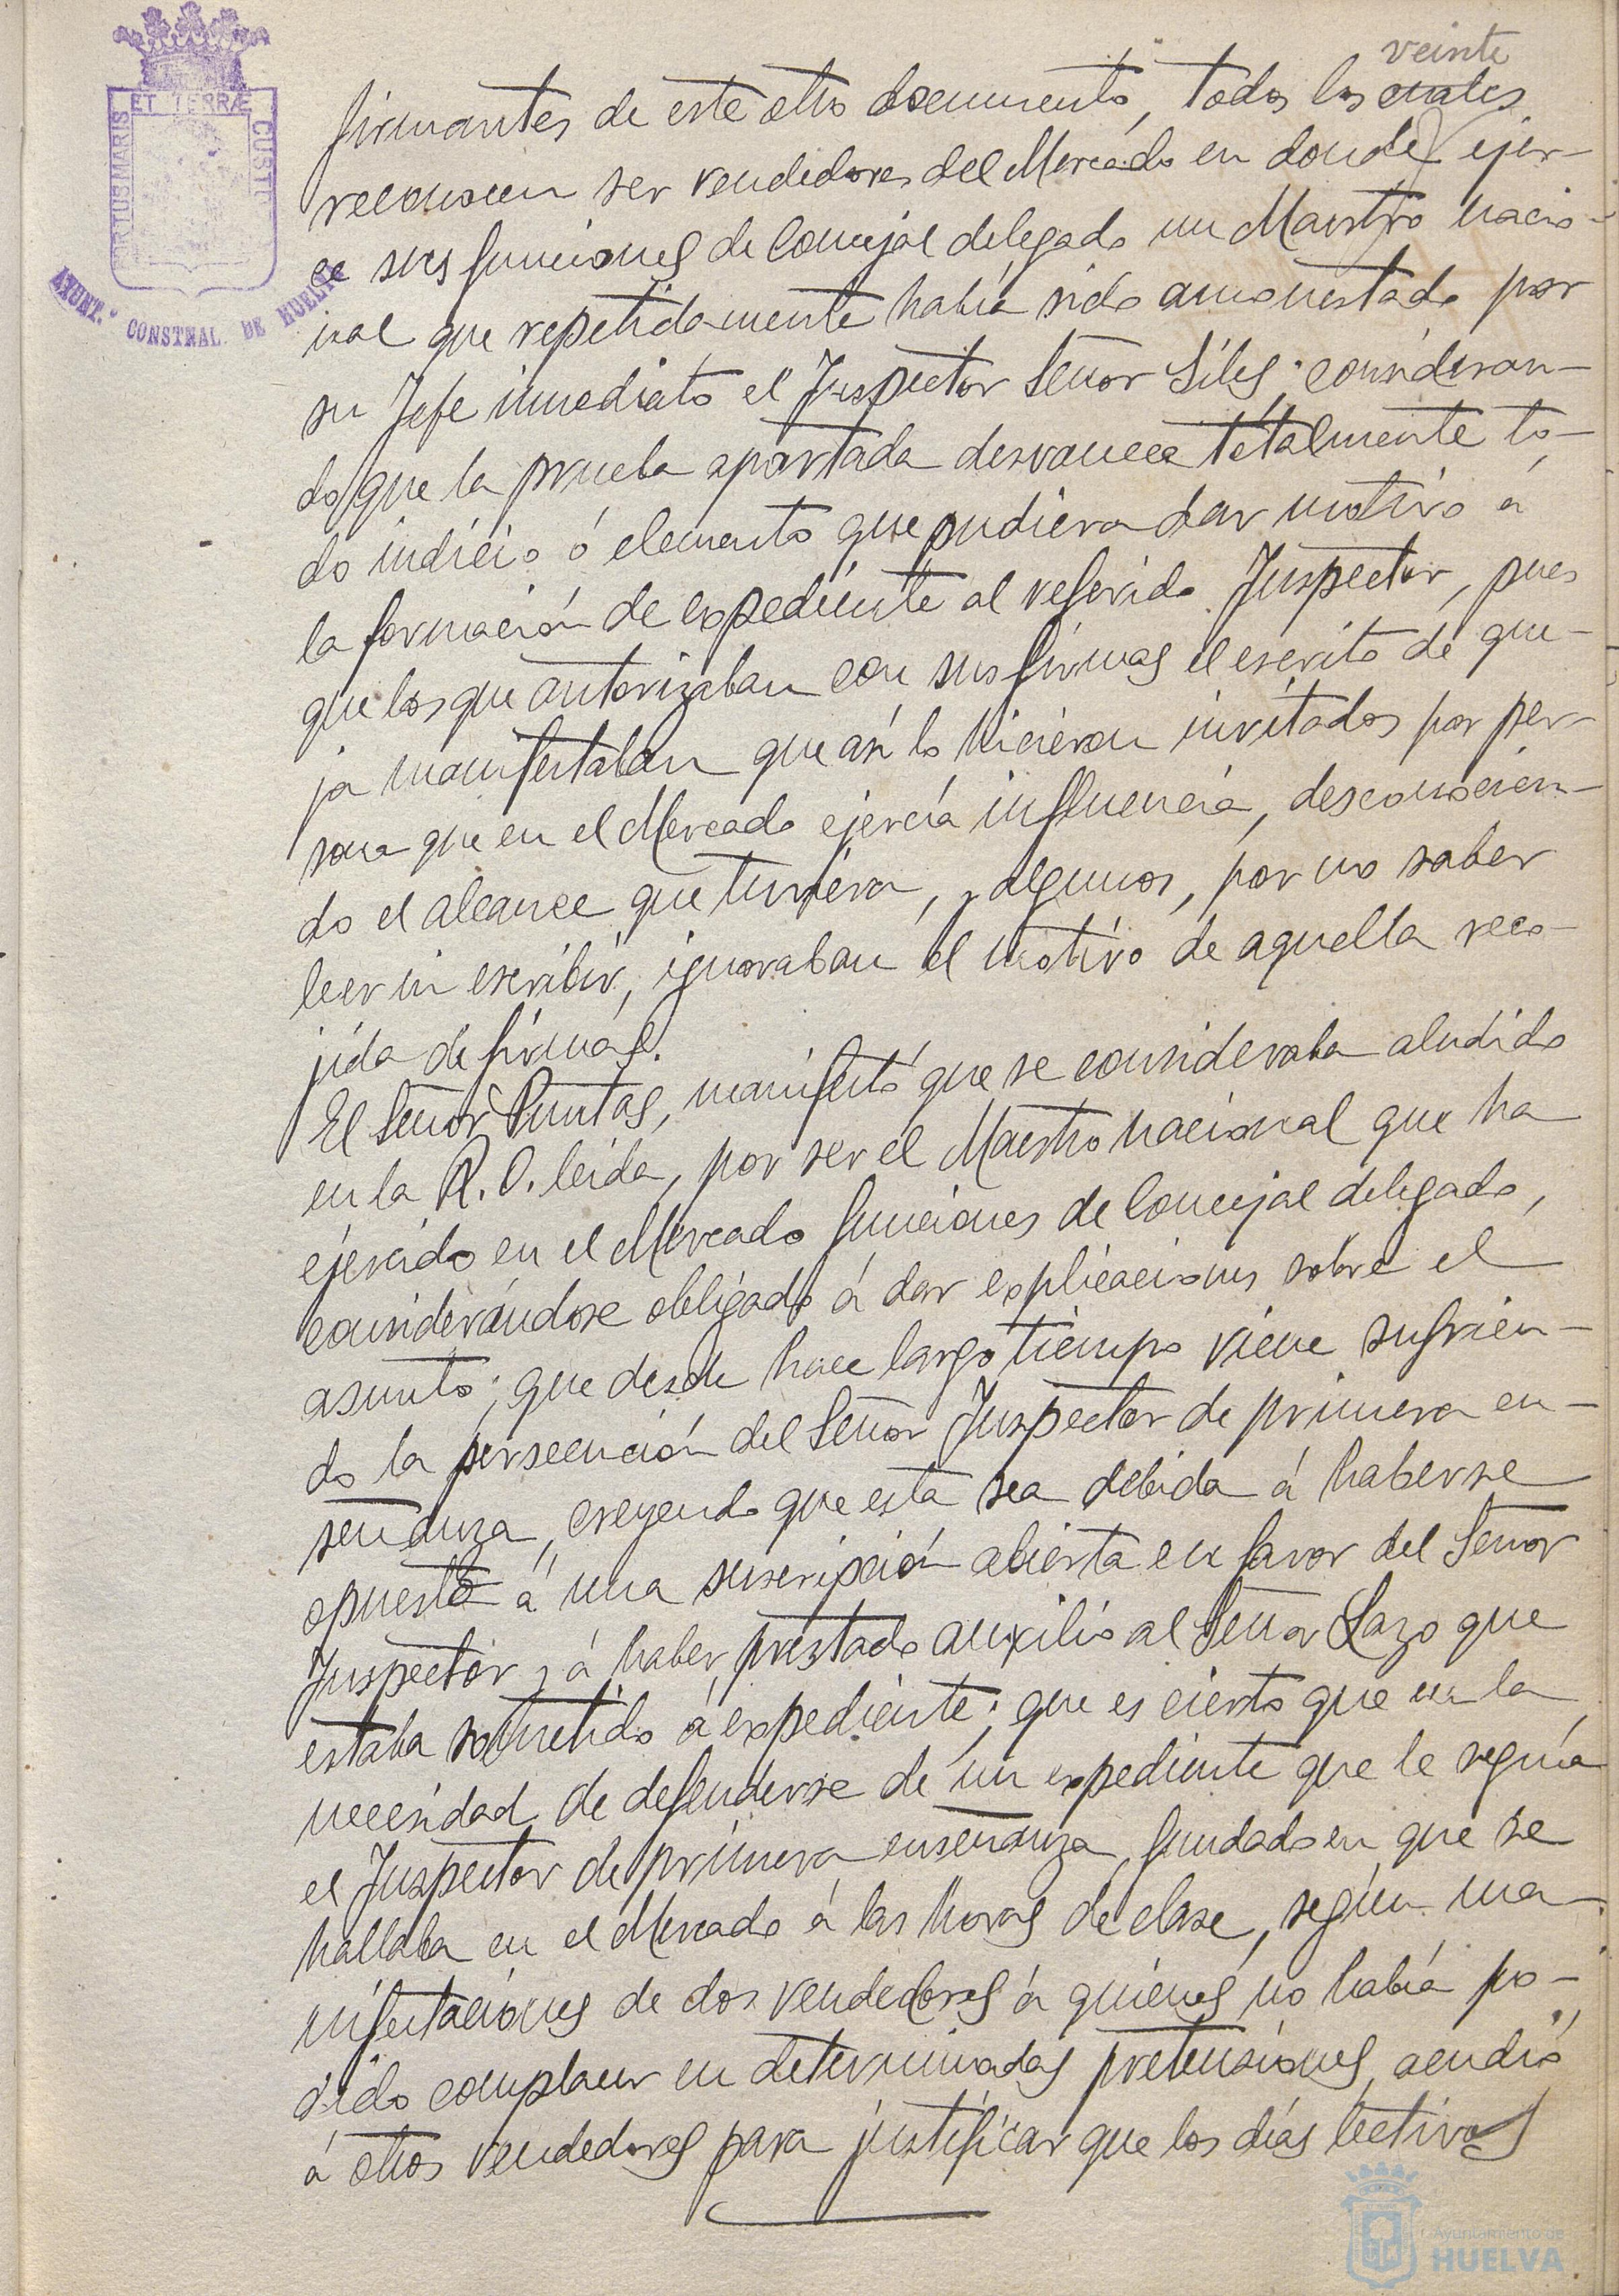 veinte
firmantes de este otro documento, todos los cuales
reconocen ser vendedores del Mercado en donde ejer-
ce sus funciones de Concejal delegado un Maestro nacio-
nal que repetidamente había sido amonestado por
su Jefe inmediato el Inspector Señor Siles; consideran-
do que la prueba aportada desvanece totalmente to-
do indicio ó elemento que pudiera dar motivo á
la formación de expediente al referido Inspector, pues
que los que autorizaban con sus firmas el escrito de que-
ja manifestaban que así lo hicieron invitados por per-
sona que en el Mercado ejercía influencia, desconocien-
do el alcance que tuviera, y algunos, por no saber
leer ni escribir, ignoraban el motivo de aquella reco-
jida de firmas.
El Señor Puntas, manifestó que se consideraba aludido
en la R. O. leida, por ser el Maestro nacional que ha
ejercido en el Mercado funciones de Concejal delegado,
considerándose obligado á dar explicaciones sobre el
asunto; que desde hace largo tiempo viene sufrien-
do la persecución del Señor Inspector de primera en-
señanza, creyendo que esta sea debida á haberse
opuesto á una suscripción abierta en favor del Señor
Inspector y á haber prestado auxilio al Señor Lazo que
estaba sometido á expediente; que es cierto que en la
necesidad de defenderse de un expediente que le seguía
el Inspector de primera enseñanza, fundado en que se
hallaba en el Mercado á las horas de clase, según ma-
nifestaciones de dos vendedores á quienes no había po-
dido complacer en determinadas pretensiones, acudió
á otros vendedores para justificar que los días lectivos
PORTUS MARIS ET TERRÆ CUSTO
AYUNT.º CONSTNAL. DE HUELVA
Ayuntamiento de
HUELVA